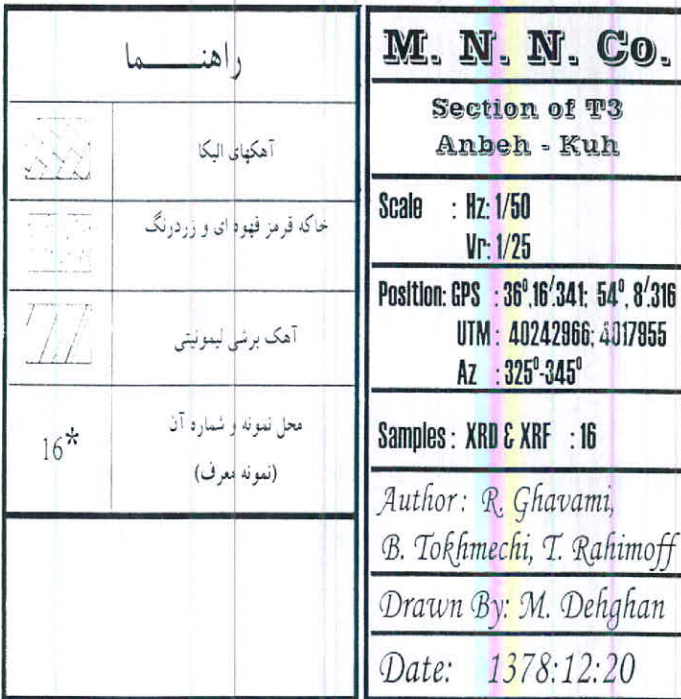 راهنـــــما
آهکهای الیکا
خاکه قرمز قهوه ای و زردرنگ
آهک برشی لیمونیتی
محل نمونه و شماره آن
(نمونه معرف)
16*
M. N. N. Co.
Section of T3
Anbeh - Kuh
Scale : Hz: 1/50
Vr: 1/25
Position: GPS : 36⁰,16′.341; 54⁰, 8′.316
UTM : 40242966; 4017955
Az : 325⁰-345⁰
Samples : XRD & XRF : 16
Author: R. Ghavami,
B. Tokhmechi, T. Rahimoff
Drawn By: M. Dehghan
Date: 1378:12:20